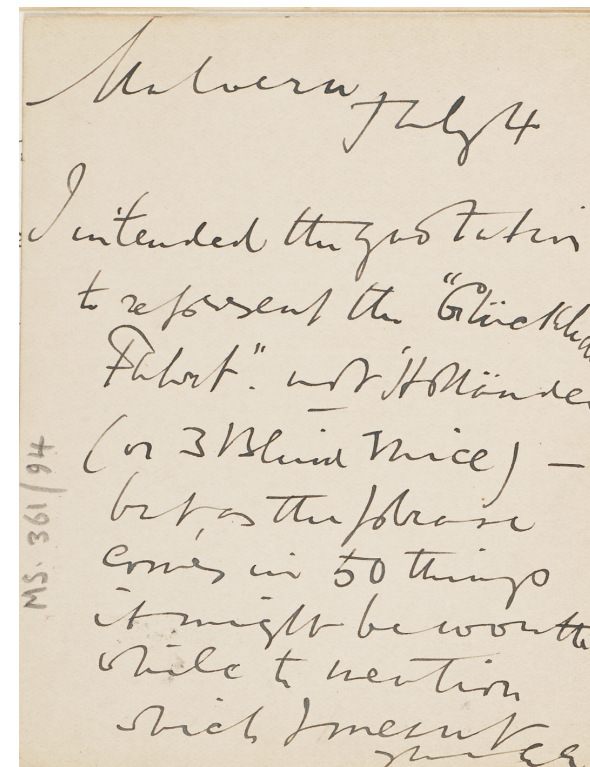 Malvern
July 4
I intended the quotation
to represent the "Glückli
Fahrt". not "Hollände
(or 3 Blind Mice) —
but, as the phrase
comes in 50 things
it might be worth
while to mention
which I meant
MS. 361/94